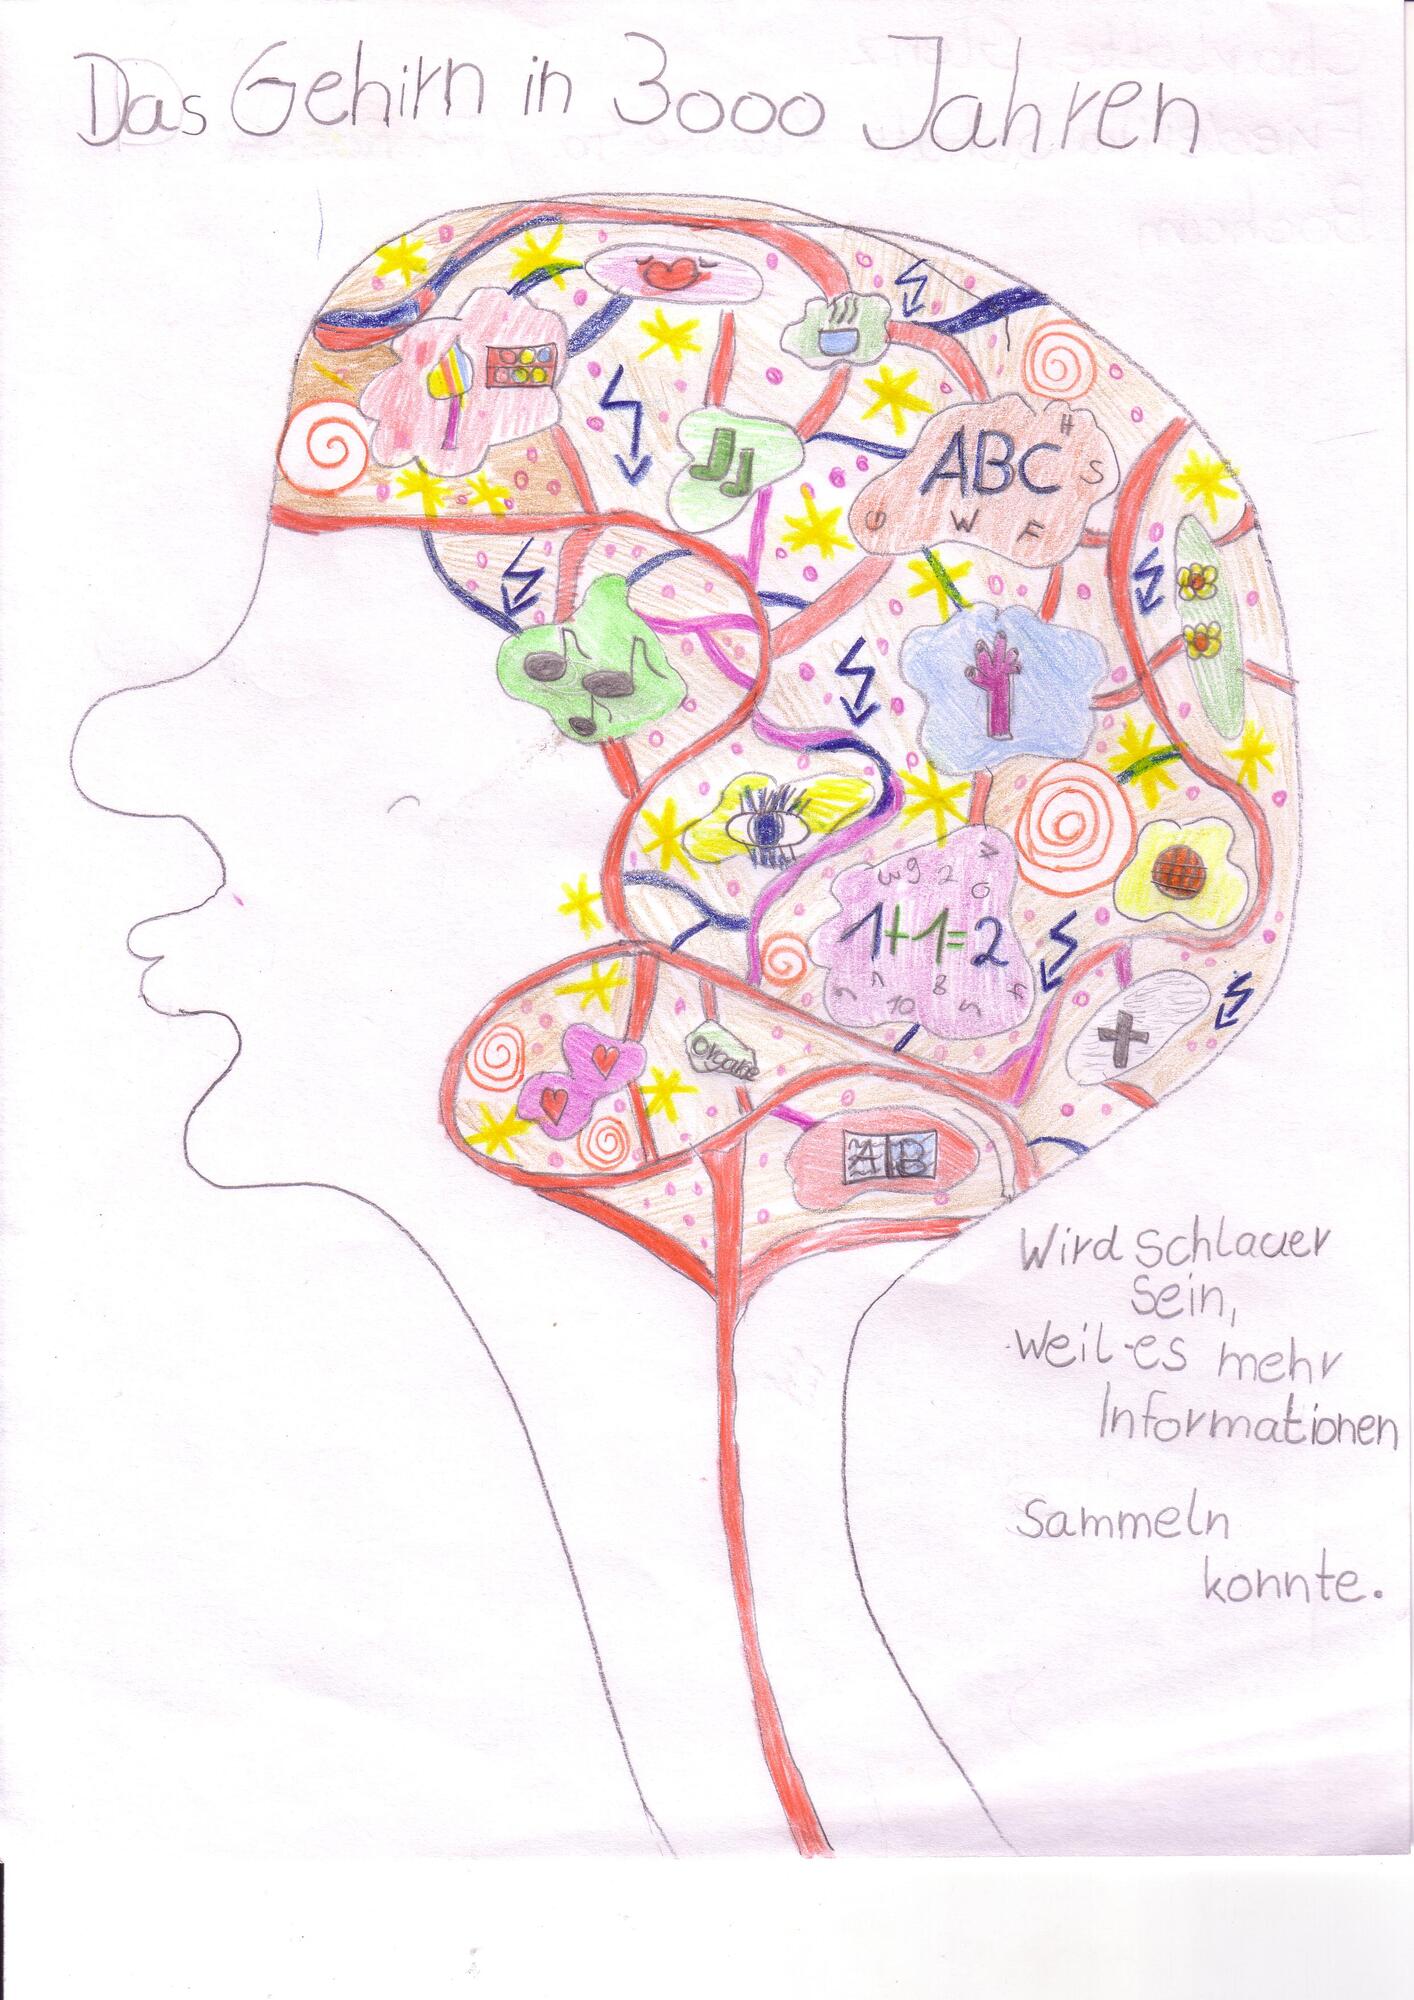 Das Gehirn in 3000 Jahren
ABC
H
S
W
F
1+1=2
10
8
Organe
A B
Wird schlauer
sein,
weil es mehr
Informationen
sammeln
konnte.